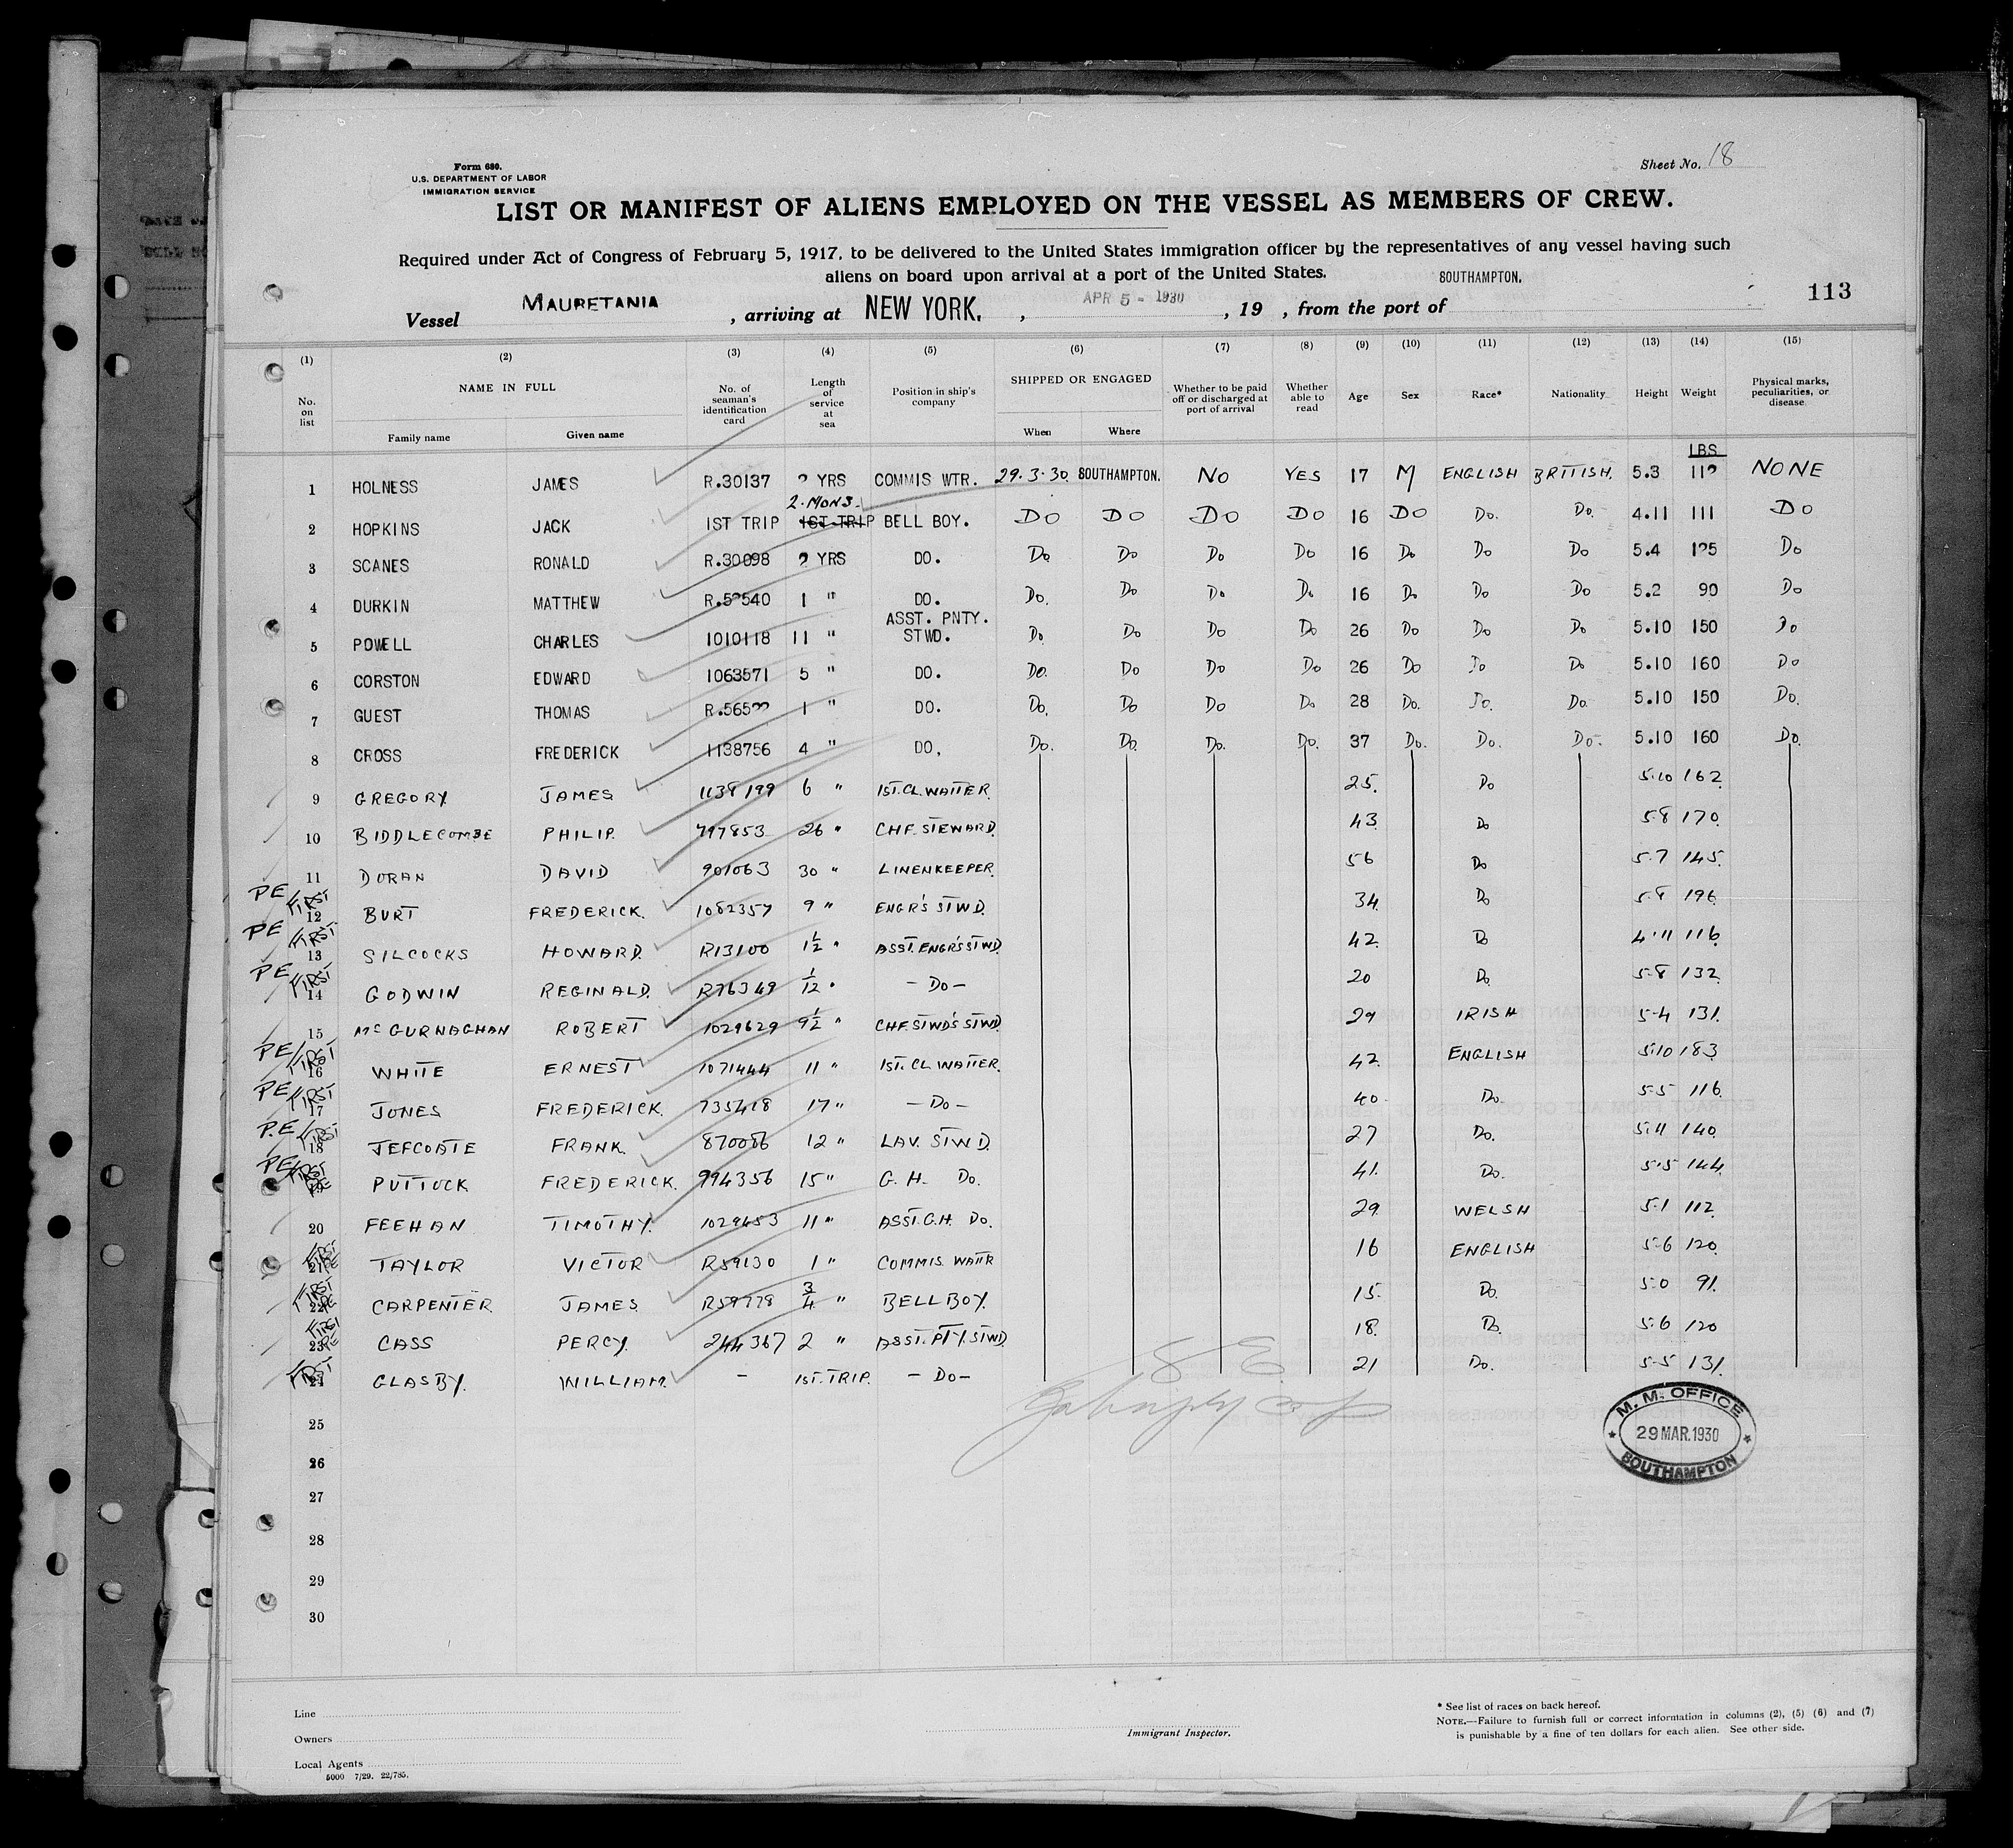 Form 680.
U. S. DEPARTMENT OF LABOR
IMMIGRATION SERVICE
Sheet No. 18
LIST OR MANIFEST OF ALIENS EMPLOYED ON THE VESSEL AS MEMBERS OF CREW.
Required under Act of Congress of February 5, 1917, to be delivered to the United States immigration officer by the representatives of any vessel having such
aliens on board upon arrival at a port of the United States.
Vessel MAURETANIA, arriving at NEW YORK., APR 5 - 1930, 19 , from the port of SOUTHAMPTON.
113
(1) (2) (3) (4) (5) (6) (7) (8) (9) (10) (11) (12) (13) (14) (15)
No. on list NAME IN FULL Family name Given name No. of seaman's identification card Length of service at sea Position in ship's company SHIPPED OR ENGAGED When Where Whether to be paid off or discharged at port of arrival Whether able to read Age Sex Race* Nationality Height Weight Physical marks, peculiarities, or disease
LBS
1 HOLNESS JAMES R.30137 YRS COMMIS WTR. 29.3.30. SOUTHAMPTON. NO YES 17 M ENGLISH BRITISH. 5.3 NONE
2. MONS.
2 HOPKINS JACK 1ST TRIP 1ST TRIP BELL BOY. DO DO DO DO 16 DO Do. Do. 4.11 111 DO
3 SCANES RONALD R.30098 YRS DO. Do Do Do Do 16 Do Do Do 5.4 Do
4 DURKIN MATTHEW 1 " DO. Do. Do Do Do 16 Do Do Do 5.2 90 Do
5 POWELL CHARLES 1010118 11 " ASST. PNTY. STWD. Do Do Do Do 26 Do Do Do 5.10 150 Do
6 CORSTON EDWARD 1063571 5 " DO. Do. Do Do Do 26 Do Do Do 5.10 160 Do
7 GUEST THOMAS 1 " DO. Do. Do Do Do 28 Do. Do. Do. 5.10 150 Do.
8 CROSS FREDERICK 1138756 4 " DO. Do. Do. Do. Do. 37 Do. Do. Do. 5.10 160 Do.
9 GREGORY JAMES 1138199 6 " 1ST.CL.WAITER. 25. Do 5.10 162.
10 BIDDLECOMBE PHILIP. 797853 26 " CHF. STEWARD. 43. Do 5.8 170.
11 DORAN DAVID 901063 30 " LINENKEEPER. 56 Do 5.7 145.
PE FIRST 12 BURT FREDERICK. 1082357 9 " ENGR'S STWD. 34. Do 5.8 196
PE FIRST 13 SILCOCKS HOWARD. R13100 1/12 " ASST.ENGR'S STWD. 42. Do 4'11 116.
PE FIRST 14 GODWIN REGINALD. R76349 1/12 " - Do - 20 Do. 5.8 132.
15 McGURNAGHAN ROBERT 1029629 9½ " CHF.STWD'S STWD. 29 IRISH 5-4 131.
PE FIRST 16 WHITE ERNEST 1071444 11 " 1ST. CL. WAITER. 42. ENGLISH 5.10 183
PE FIRST 17 JONES FREDERICK. 735418 17 " - Do - 40 Do. 5-5 116.
P.E FIRST 18 JEFCOATE FRANK. 870086 12 " LAV. STWD. 27 Do. 5.11 140.
PE FIRST PUTTOCK FREDERICK. 994356 15 " G. H. Do. 41. Do. 5.5 144.
20 FEEHAN TIMOTHY. 1029453 11 " ASST.G.H. Do. 29. WELSH 5.1 112.
FIRST PE 21 TAYLOR VICTOR R59130 1 " COMMIS WAITR 16 ENGLISH 5-6 120.
FIRST PE 22 CARPENTER. JAMES. R59778 ¾ " BELL BOY. 15. Do. 5.0 91.
FIRST PE 23 CASS PERCY. 244367 2 " ASST. PTY. STWD. 18. Do. 5.6 120
FIRST 24 GLASBY. WILLIAM. - 1ST.TRIP. - Do - 21 Do. 5-5 131.
25
26
27
28
29
30
M. M. OFFICE
29 MAR.1930
SOUTHAMPTON
Line
Owners
Local Agents
5000 7/29. 22/785.
Immigrant Inspector.
* See list of races on back hereof.
NOTE.—Failure to furnish full or correct information in columns (2), (5) (6) and (7)
is punishable by a fine of ten dollars for each alien. See other side.